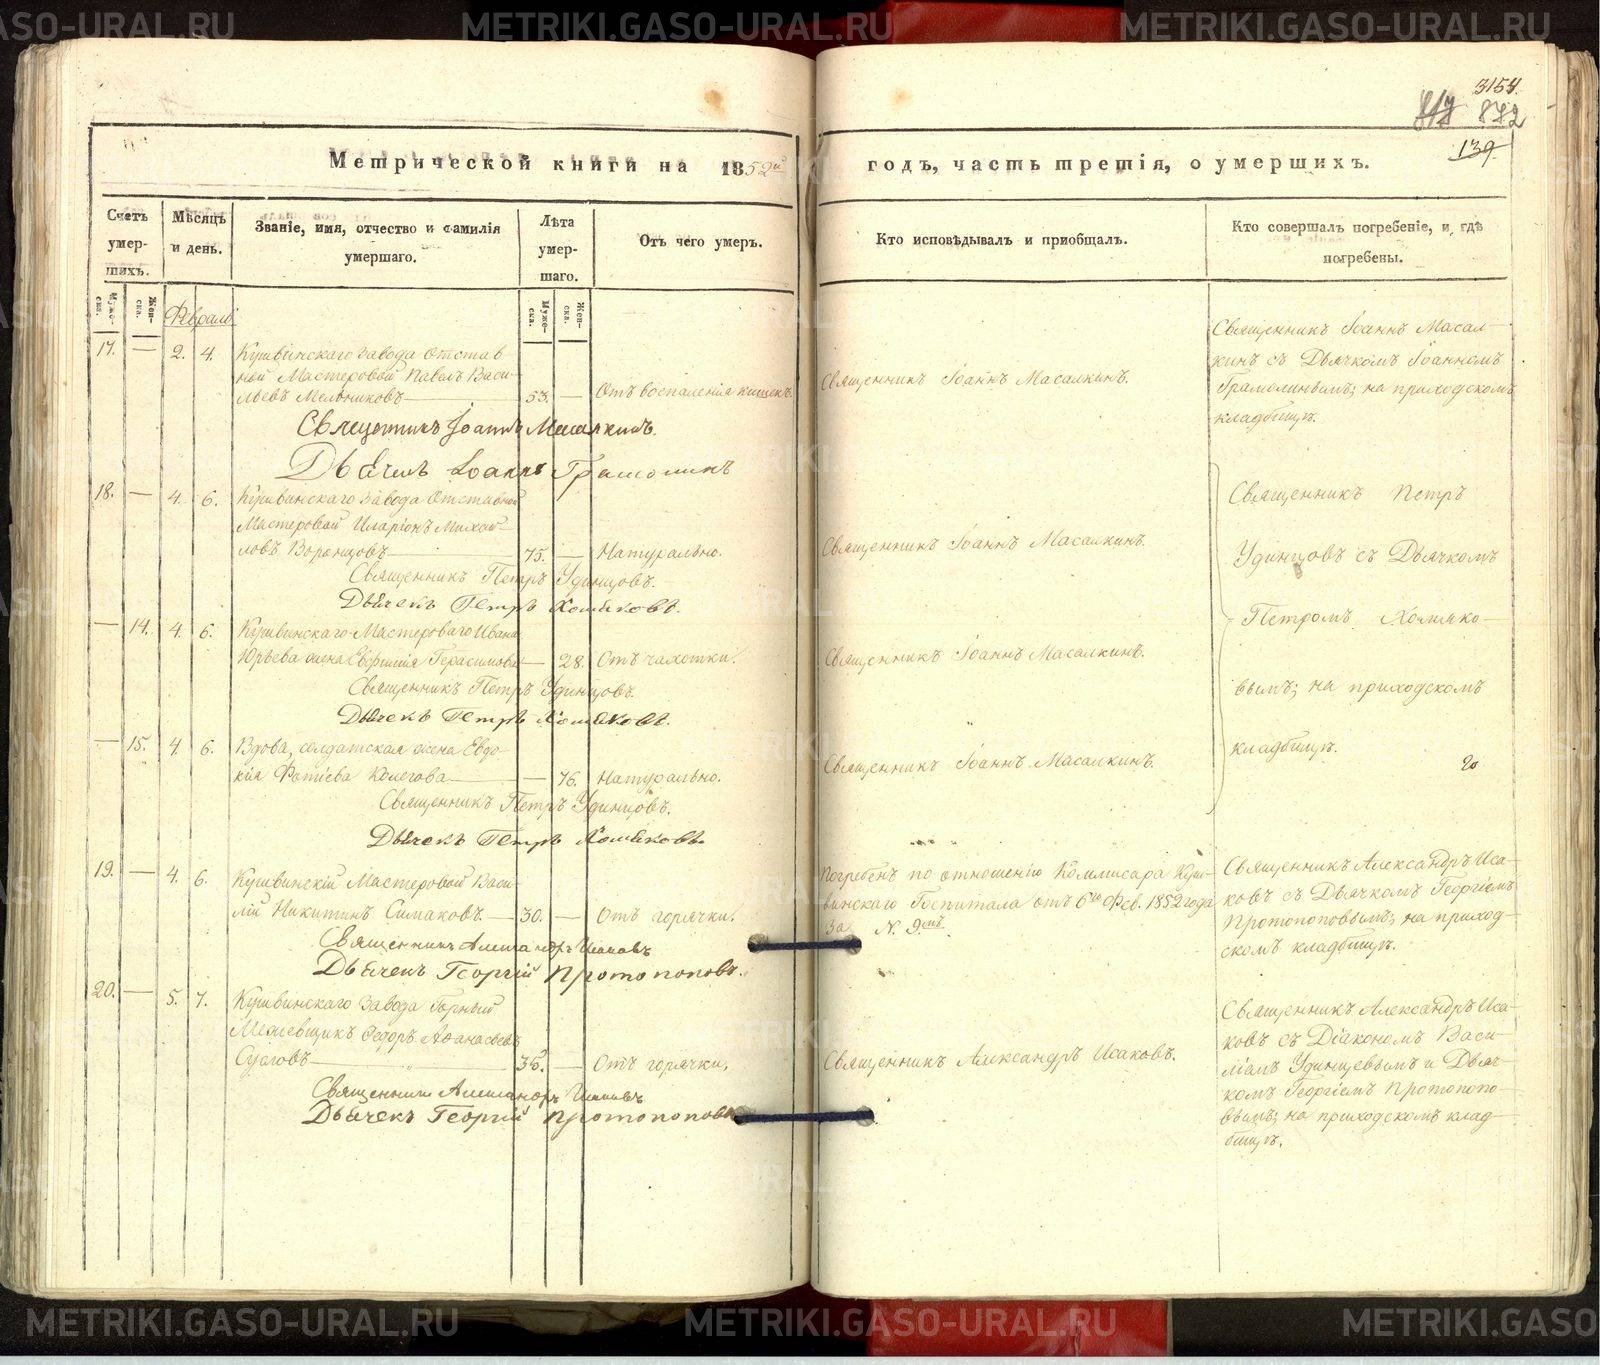 METRIKI.GASO-URAL.RU
3154.
817 872
139.
Метрической книги на 1852й годъ, часть третія, о умершихъ.
Счетъ умер-шихъ.
Мѣсяцъ и день.
Званіе, имя, отчество и фамилія умершаго.
Лѣта умер-шаго.
Отъ чего умеръ.
Кто исповѣдывалъ и пріобщалъ.
Кто совершалъ погребеніе, и гдѣ погребены.
Муже-ска. Жен-ска. Муже-ска. Жен-ска.
Февраль
17. — 2. 4. Кушвинскаго завода Отстав
ной Мастеровой Павелъ Васи-
льевъ Мельниковъ — 53. — Отъ воспаленія кишекъ.
Священникъ Іоаннъ Масалкинъ.
Дьячекъ Іоаннъ Грамолинъ
Священникъ Іоаннъ Масалкинъ.
Священникъ Іоаннъ Масал-
кинъ съ Дьячкомъ Іоанномъ
Грамолинымъ; на приходскомъ
кладбищѣ.
18. — 4. 6. Кушвинскаго завода Отставной
Мастеровой Иларіонъ Михай-
ловъ Воронцовъ — 75. — Натурально.
Священникъ Петръ Удинцовъ.
Дьячекъ Петръ Хомяковъ.
Священникъ Іоаннъ Масалкинъ.
Священникъ Петръ
Удинцовъ съ Дьячкомъ
Петромъ Хомяко-
вымъ; на приходскомъ
кладбищѣ.
— 14. 4. 6. Кушвинскаго Мастероваго Ивана
Юрьева жена Евфимія Герасимова — 28. Отъ чахотки.
Священникъ Петръ Удинцовъ.
Дьячекъ Петръ Хомяковъ.
Священникъ Іоаннъ Масалкинъ.
— 15. 4. 6. Вдова, солдатская жена Евдо-
кія Фотіева Колегова — — 76. Натурально.
Священникъ Петръ Удинцовъ.
Дьячекъ Петръ Хомяковъ.
Священникъ Іоаннъ Масалкинъ.
19. — 4. 6. Кушвинскій Мастеровой Васи-
лій Никитинъ Симаковъ. — 30. — Отъ горячки.
Священникъ Александръ Исаковъ
Дьячекъ Георгій Протопоповъ.
Погребенъ по отношенію Коммисара Куш-
винскаго Госпитала отъ 6го Фев. 1852 года
За N. 9мъ.
Священникъ Александръ Иса-
ковъ съ Дьячкомъ Георгіемъ
Протопоповымъ; на приход-
скомъ кладбищѣ.
20. — 5. 7. Кушвинскаго Завода Горный
Межевщикъ Федоръ Афанасьевъ
Сусловъ — 36. — Отъ горячки.
Священникъ Александръ Исаковъ
Дьячекъ Георгій Протопоповъ
Священникъ Александръ Исаковъ.
Священникъ Александръ Иса-
ковъ съ Діакономъ Васи-
ліемъ Удинцевымъ и Дьяч-
комъ Георгіемъ Протопопо-
вымъ; на приходскомъ клад-
бищѣ.